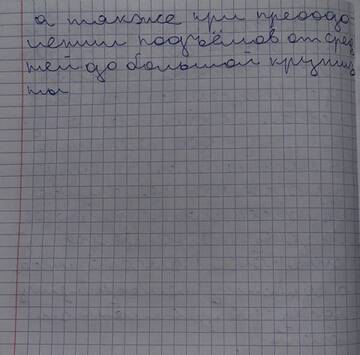 а также при преодо
лении подъёмов от сред
ней до большой крутиз
ны